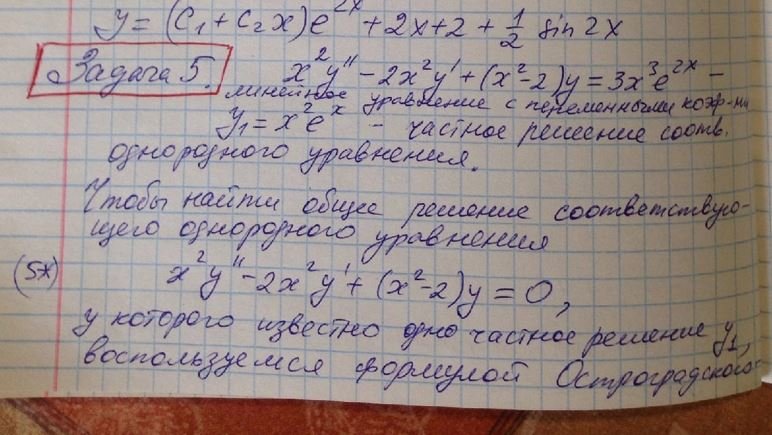 y = (C₁ + C₂ x) e^{2x} + 2x + 2 + \frac{1}{2} sin 2x
Задача 5. x²y'' - 2x²y' + (x²-2)y = 3x³e^{2x} –
линейное уравнение с переменными коэф-ми
y₁ = x²e^x - частное решение соотв.
однородного уравнения.
Чтобы найти общее решение соответствую-
щего однородного уравнения
(5*) x²y'' - 2x²y' + (x²-2)y = 0,
у которого известно одно частное решение y₁,
воспользуемся формулой Остроградского-